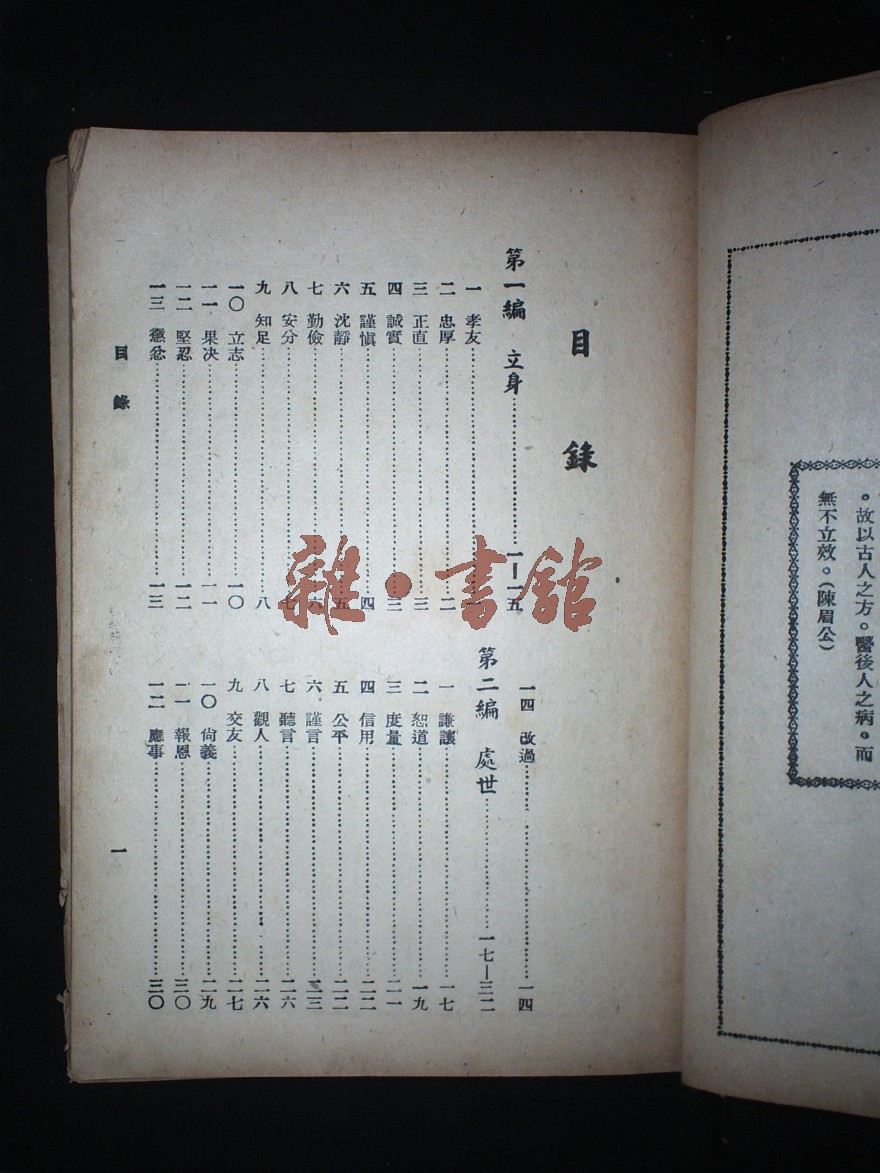 。故以古人之方。醫後人之病。而
無不立效。(陳眉公)
目錄
第一編 立身 一—一五
一 孝友
二 忠厚 二
三 正直 三
四 誠實 三
五 謹慎 四
六 沈靜 五
七 勤儉 六
八 安分 七
九 知足 八
一〇 立志 一〇
一一 果決 一一
一二 堅忍 一二
一三 懲忿 一三
一四 改過 一四
第二編 處世 一七—三二
一 謙讓 一七
二 恕道 一九
三 度量 二一
四 信用 二二
五 公平 二二
六 謹言 二三
七 聽言 二六
八 觀人 二六
九 交友 二七
一〇 尚義 二九
一一 報恩 三〇
一二 應事 三〇
目錄
一
雜·書館